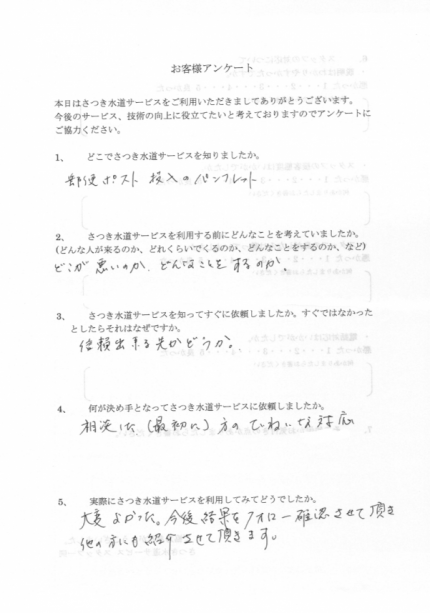 お客様アンケート
本日はさつき水道サービスをご利用いただきましてありがとうございます。
今後のサービス、技術の向上に役立てたいと考えておりますのでアンケートに
ご協力ください。
1、 どこでさつき水道サービスを知りましたか。
郵便ポスト 投入のパンフレット
2、 さつき水道サービスを利用する前にどんなことを考えていましたか。
(どんな人が来るのか、どれくらいでくるのか、どんなことをするのか、など)
どこが悪いのか、どんなことをするのか。
3、 さつき水道サービスを知ってすぐに依頼しましたか。すぐではなかった
としたらそれはなぜですか。
信頼出来る先かどうか。
4、 何が決め手となってさつき水道サービスに依頼しましたか。
相談した(最初に)方のていねいな対応
5、 実際にさつき水道サービスを利用してみてどうでしたか。
大変よかった。今後結果をフォロー確認させて頂き
他の方にも紹介させて頂きます。